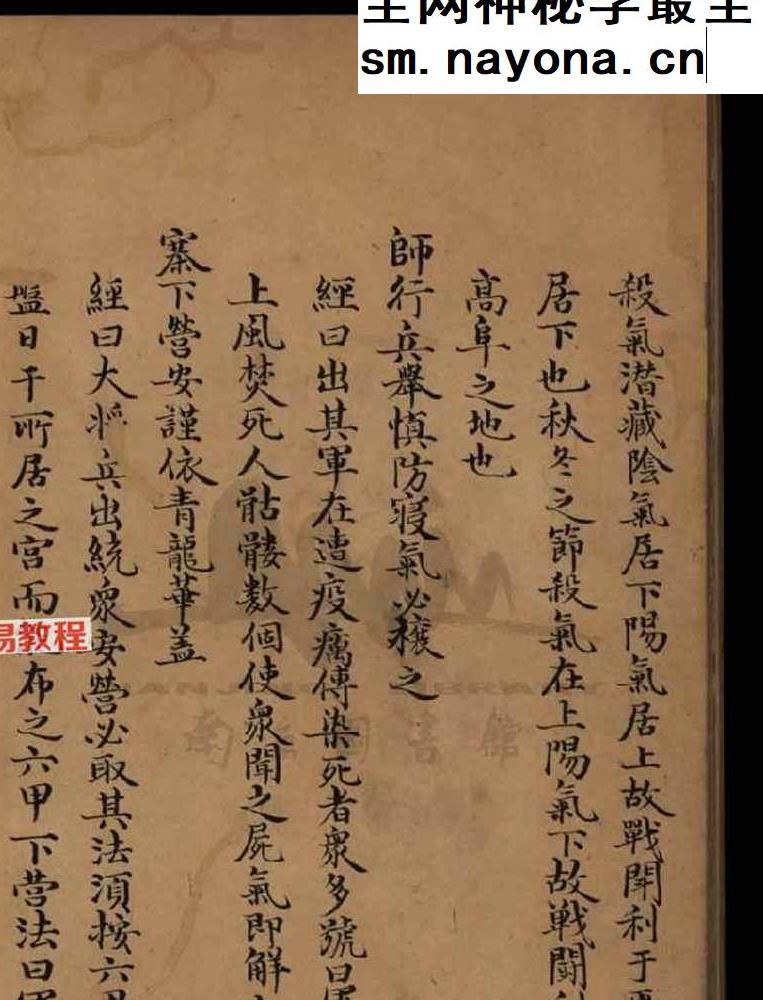 sm.nayona.cn
殺氣潜藏陰氣居下陽氣居上故戰鬪利于
居下也秋冬之節殺氣在上陽氣下故戰鬪
髙阜之地也
師行兵舉慎防寝氣必穰之
經曰出其軍在遭疫癘傳染死者衆多號曰
上風焚死人骷髏数個使衆聞之屍氣即解
寨下營安謹依青龍華盖
經曰大將兵出統衆安營必取其法須按六
日干所居之宮而布之六甲下营法曰
易教程
南圖書館